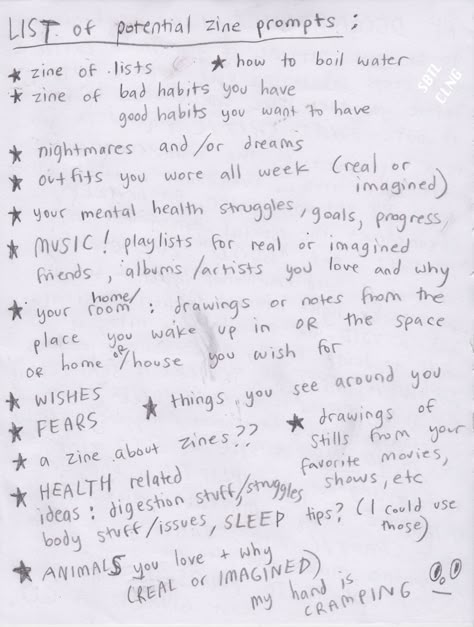 LIST of potential zine prompts :
★ zine of lists ★ how to boil water
★ zine of bad habits you have
good habits you want to have
SBTL
CLNG
★ nightmares and/or dreams
★ outfits you wore all week (real or
imagined)
★ your mental health struggles, goals, progress
★ MUSIC! playlists for real or imagined
friends, albums/artists you love and why
★ your home/
room : drawings or notes from the
place you wake up in OR the space
OR home OR/house you wish for
★ WISHES
★ things you see around you
★ FEARS
★ a zine about zines??
★ drawings of
stills from your
favorite movies,
shows, etc
★ HEALTH related
ideas : digestion stuff/struggles
body stuff/issues, SLEEP tips? (I could use
those)
★ ANIMALS you love + why
(REAL or IMAGINED)
my hand is
CRAMPING